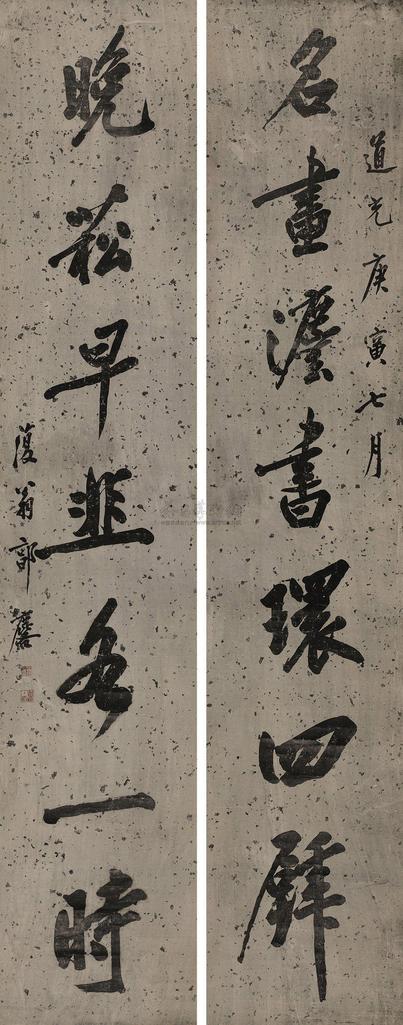 道光庚寅七月
名畫灋書環四壁
晚菘早韭各一時
復翁郭麐